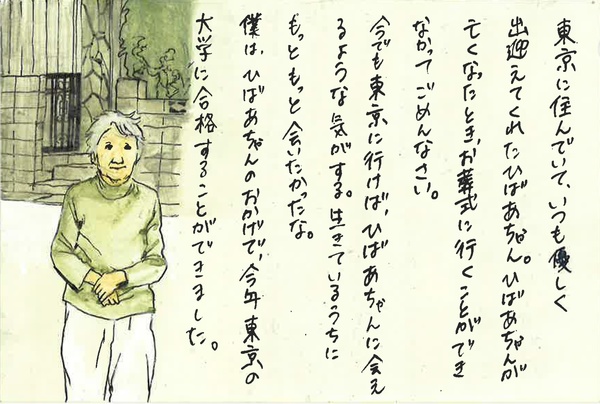 東京に住んでいて、いつも優しく
出迎えてくれたひばあちゃん。ひばあちゃんが
亡くなったとき、お葬式に行くことができ
なかってごめんなさい。
今でも東京に行けば、ひばあちゃんに会え
るような気がする。生きているうちに
もっともっと会いたかったな。
僕は、ひばあちゃんのおかげで、今年東京の
大学に合格することができました。